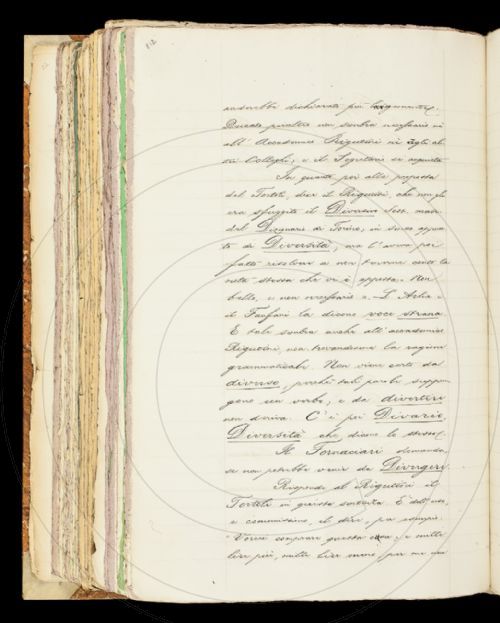 812
andrebbe dichiarato poi
Ducale peraltro non sembra necessario nè
all' Accademico Rigutini nè agli al-
tri Colleghi; e il Segretario si acqueta
In quanto poi alla proposta
del Tortoli, dice il Rigutini, che non gli
era sfuggito il Divasio
dal Dizionario di Torino, in senso appun-
to di Diversità, ma l'aver poi
fatto risolvere a non tenerne conto la
nota stessa che vi è apposta. Non
bello, e non necessario. L'Arlia e
il Fanfani la dicono voce strana
E tale sembra anche all' accademico
Rigutini, non trovandone la ragione
grammaticale. Non viene certo da
diverso, perchè tali parole suppon-
gono un verbo, e da divertere
non deriva. C'è poi Divario,
Diversità che dicono lo stesso.
Il Fornaciari domanda
se non potrebbe venir da Divergere.
Risponde al Rigutini il
Tortoli in questa sentenza. È dell'uso,
e comunissimo, il dire, per esempio:
Vorrei comprare questa cosa; e mille
lire più, mille lire meno, per me non